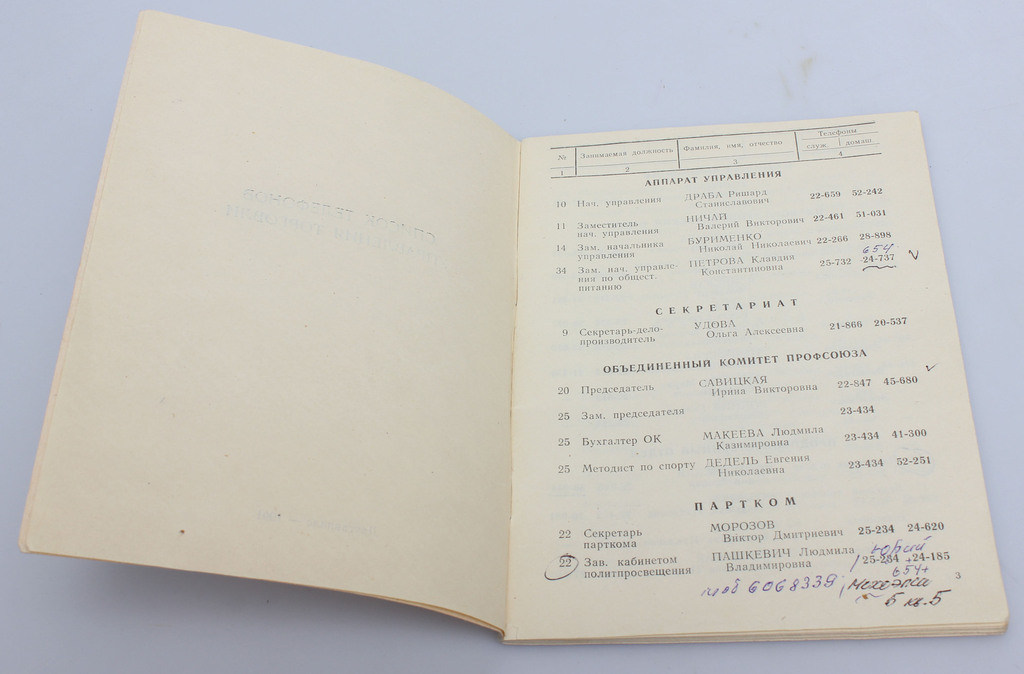 № Занимаемая должность Фамилия, имя, отчество Телефоны
служ. домаш.
1 2 3 4
АППАРАТ УПРАВЛЕНИЯ
10 Нач. управления ДРАБА Ришард 22-659 52-242
Станиславович
11 Заместитель НИЧАЙ 22-461 51-031
нач. управления Валерий Викторович
14 Зам. начальника БУРИМЕНКО 22-266 28-898
управления Николай Николаевич
654
34 Зам. нач. управле- ПЕТРОВА Клавдия 25-732 24-737
ния по общест. Константиновна
питанию
СЕКРЕТАРИАТ
9 Секретарь-дело- УДОВА 21-866 20-537
производитель Ольга Алексеевна
ОБЪЕДИНЕННЫЙ КОМИТЕТ ПРОФСОЮЗА
20 Председатель САВИЦКАЯ 22-847 45-680
Ирина Викторовна
25 Зам. председателя 23-434
25 Бухгалтер ОК МАКЕЕВА Людмила 23-434 41-300
Казимировна
25 Методист по спорту ДЕДЕЛЬ Евгения 23-434 52-251
Николаевна
ПАРТКОМ
22 Секретарь МОРОЗОВ 25-234 24-620
парткома Виктор Дмитриевич
Юрий
22 Зав. кабинетом ПАШКЕВИЧ Людмила 25-234 24-185
политпросвещения Владимировна
654+
моб 6068339
5 кв. 5
3